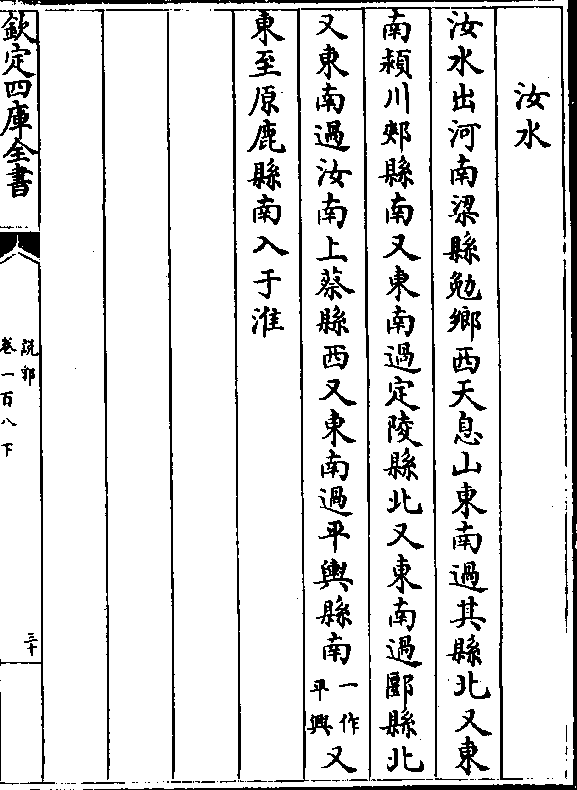 汝水
汝水出河南梁縣勉鄉西天息山東南過其縣北又東
南潁川郟縣南又東南過定陵縣北又東南過郾縣北
又東南過汝南上蔡縣西又東南過平輿縣南一作平興又
東至原鹿縣南入于淮
欽定四庫全書
說郛
卷一百八下
三十